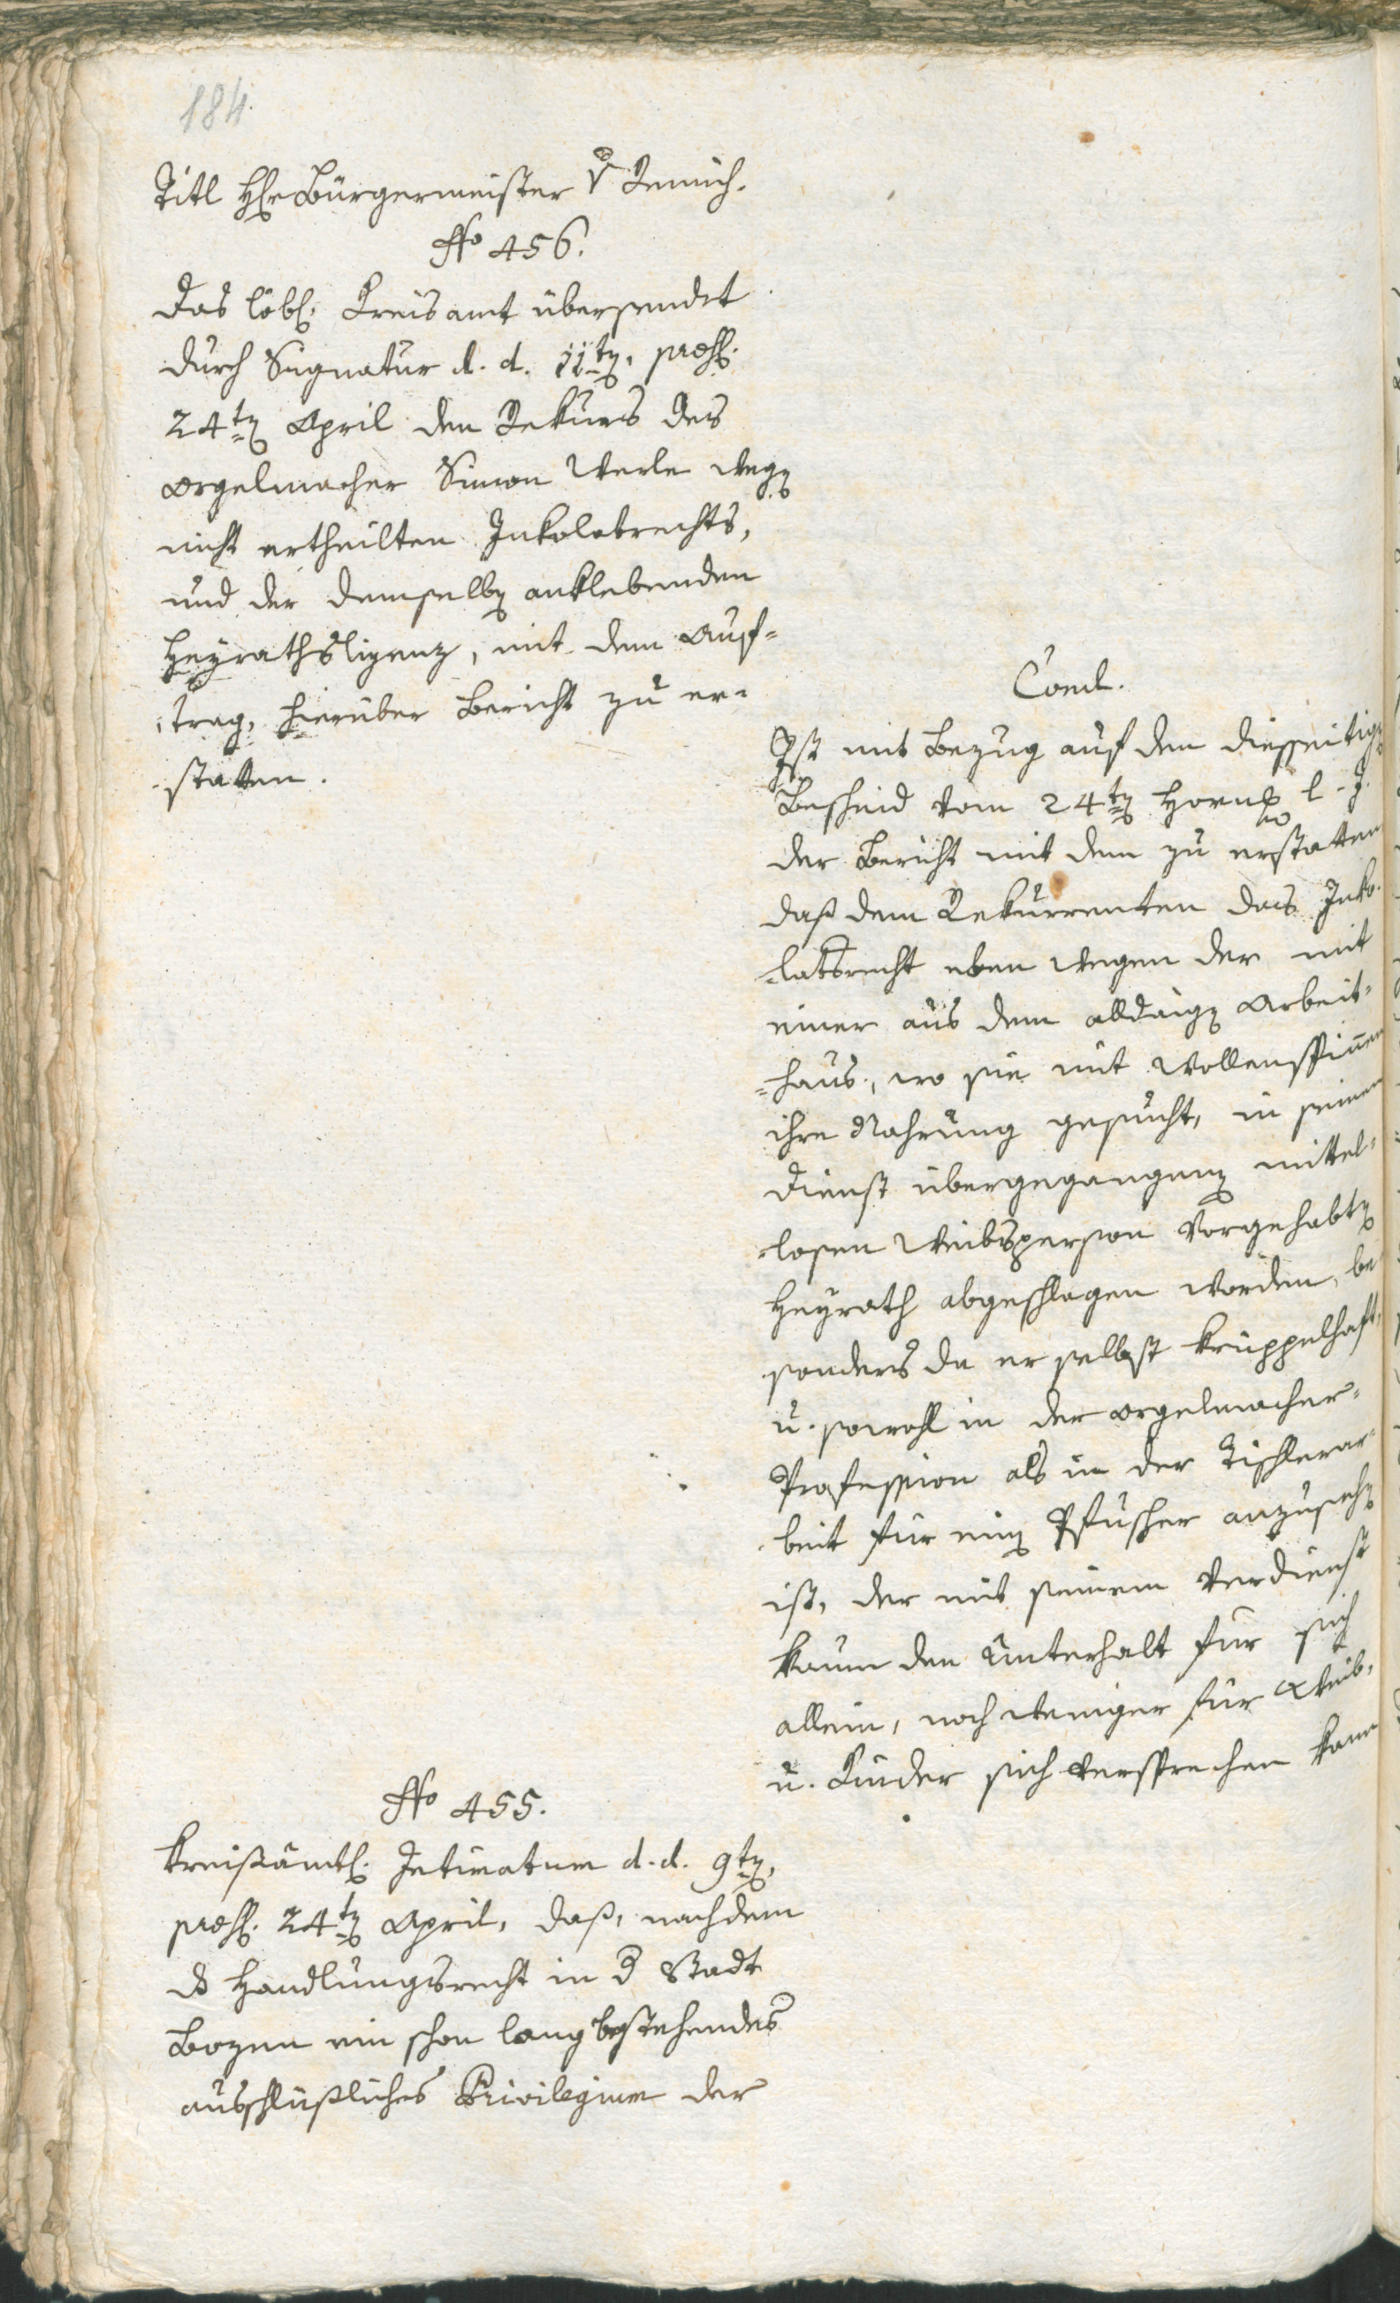 184.
Titl H̄ Bürgermeister v Remich.
No 456.
Das löbl. Kreisamt übersendet
durch Signatur d. d. 11ten, praes.
24ten April den Rekurs des
Orgelmacher Simon Werle wegen
nicht ertheilten Inkolatrechts,
und der demselben anklebenden
Heyrathslizenz, mit dem Auf-
trag, hierüber Bericht zu er-
statten.
Concl.
Ist mit Bezug auf den diesseitigen
Bescheid vom 24ten Hornung l. J.
der Bericht mit dem zu erstatten
daß dem Rekurrenten das Inko-
latsrecht eben wegen der mit
einer aus dem alldaigen Arbeit-
haus, wo sie mit Wollenspinnen
ihre Nahrung gesucht, in seinen
Dienst übergegangenen mittel-
losen Weibsperson vorgehabten
Heyrath abgeschlagen worden, be
sonders da er selbst krüppelhaft,
u. sowohl in der Orgelmacher-
Profession als in der Tischlerar-
beit für einen Pfuscher anzusehen
ist, der mit seinem Verdienst
kaum den Unterhalt für sich
allein, noch weniger für Weib,
u. Kinder sich versprechen kann
No 455.
Kreisämtl. Intimatum d. d. 9ten,
praes. 24ten April, daß, nachdem
ds Handlungsrecht in d Stadt
Bozen ein schon lang bestehendes
ausschlüßliches Privilegium der